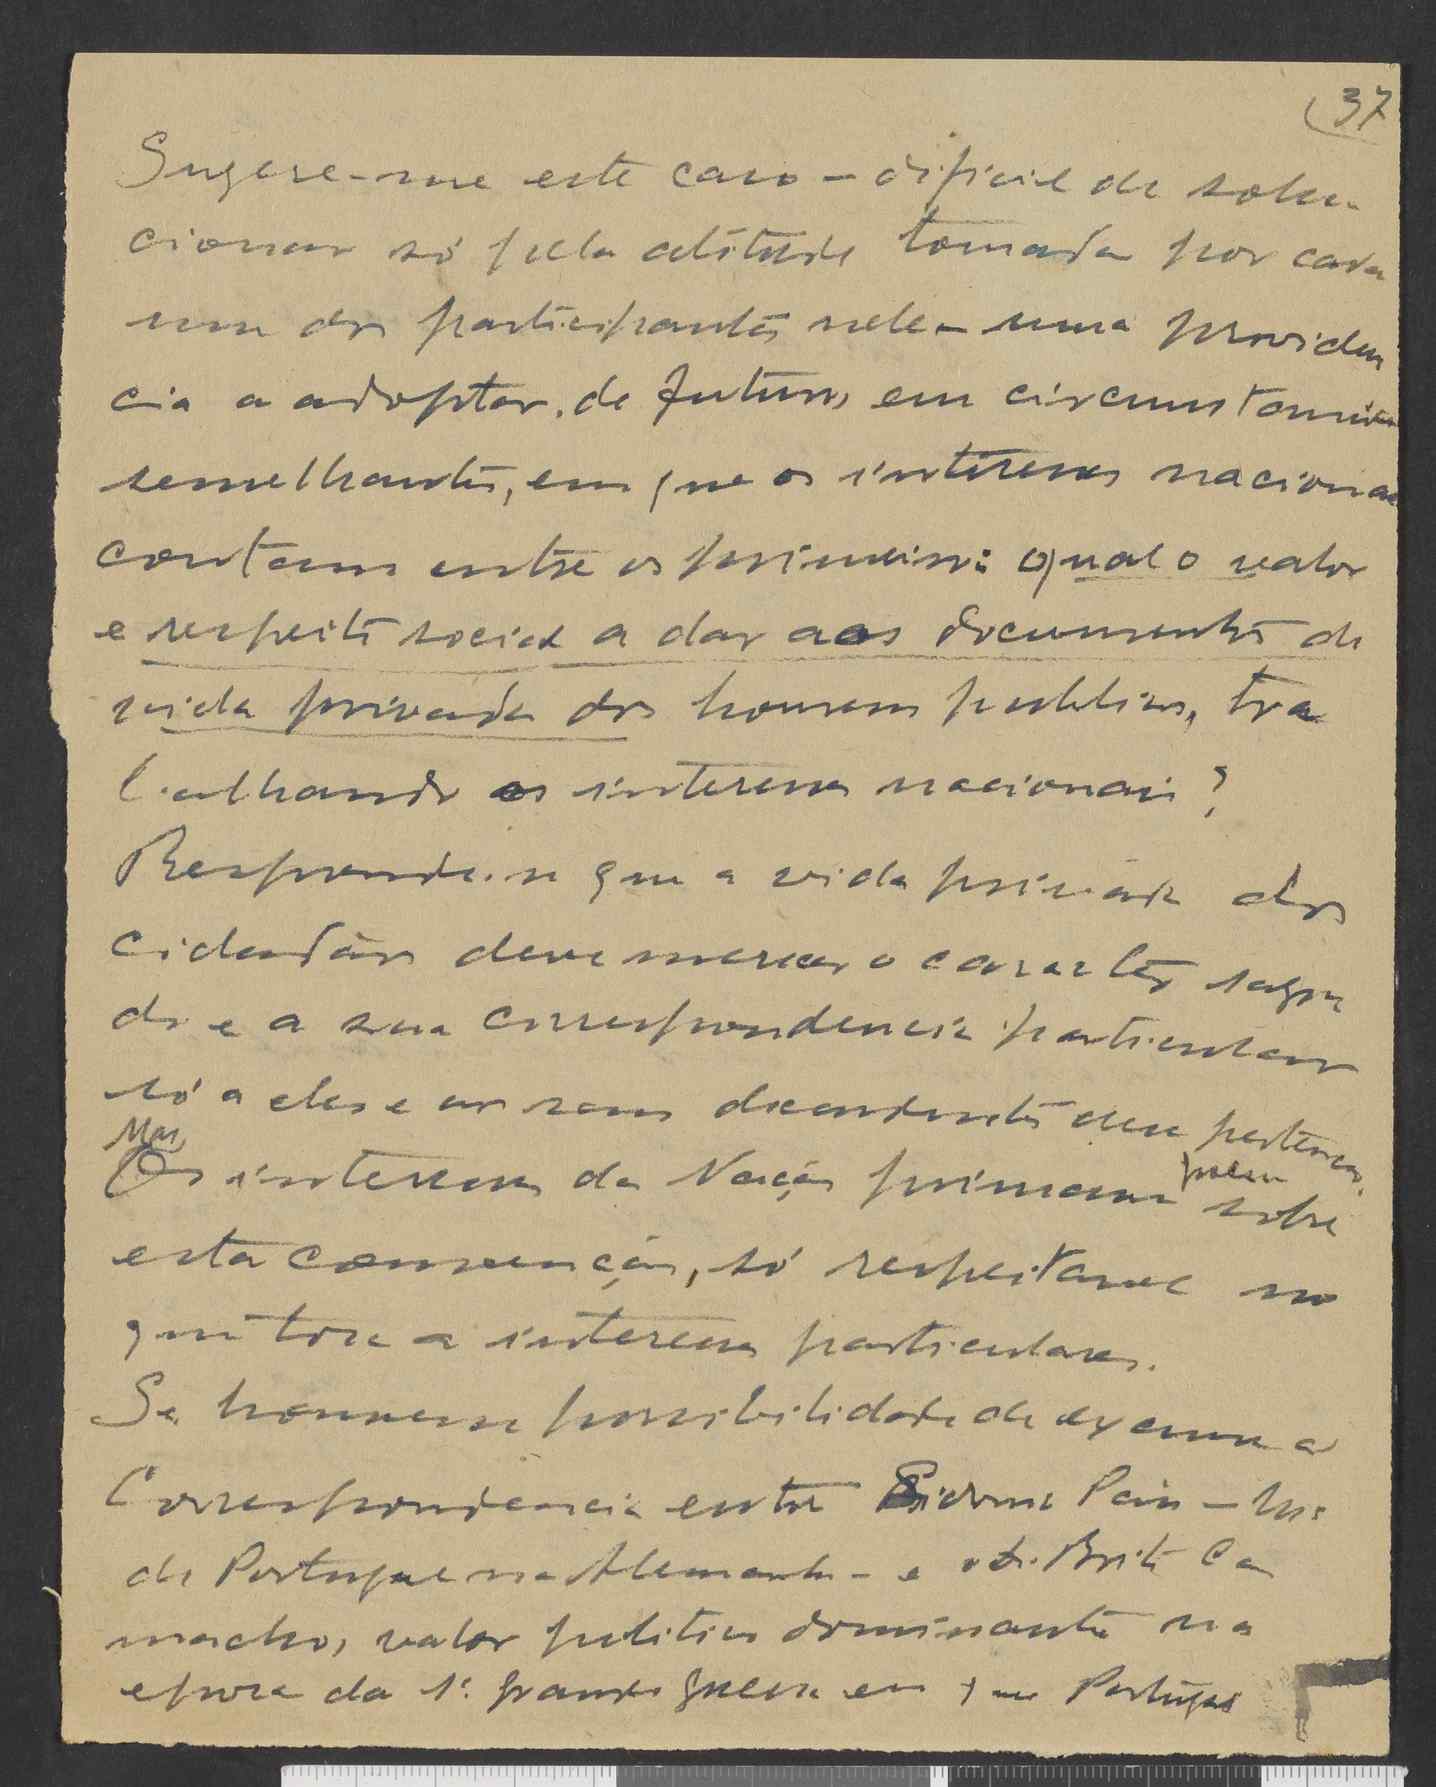 37
Sugere-me este caso - dificil de solu-
cionar só pela atitude tomada por cada
um dos participantes nele - uma providen
cia a adoptar, de futuro, em circumstancias
semelhantes, em que os interesses nacionaes
contam entre os primeiros: qual o valor
e respeito social a dar aos documentos da
vida privada dos homens publicos, tra
balhando os interesses nacionais?
Responde-se que a vida privada dos
cidadãos deve merecer o caracter sagra
do e a sua correspondencia particular
só a eles e aos seus descendentes deve pertencer.
Mas
Os interesses da Nação primam porem sobre
esta convenção, só respeitavel no
que toca a interesses particulares.
Se houvesse possibilidade de exame á
Correspondencia entre Sidonio Pais - Mi.
de Portugal na Alemanha - e o Dr. Brito Ca
macho, valor politico dominante na
epoca da 1ª grande guerra em que Portugal